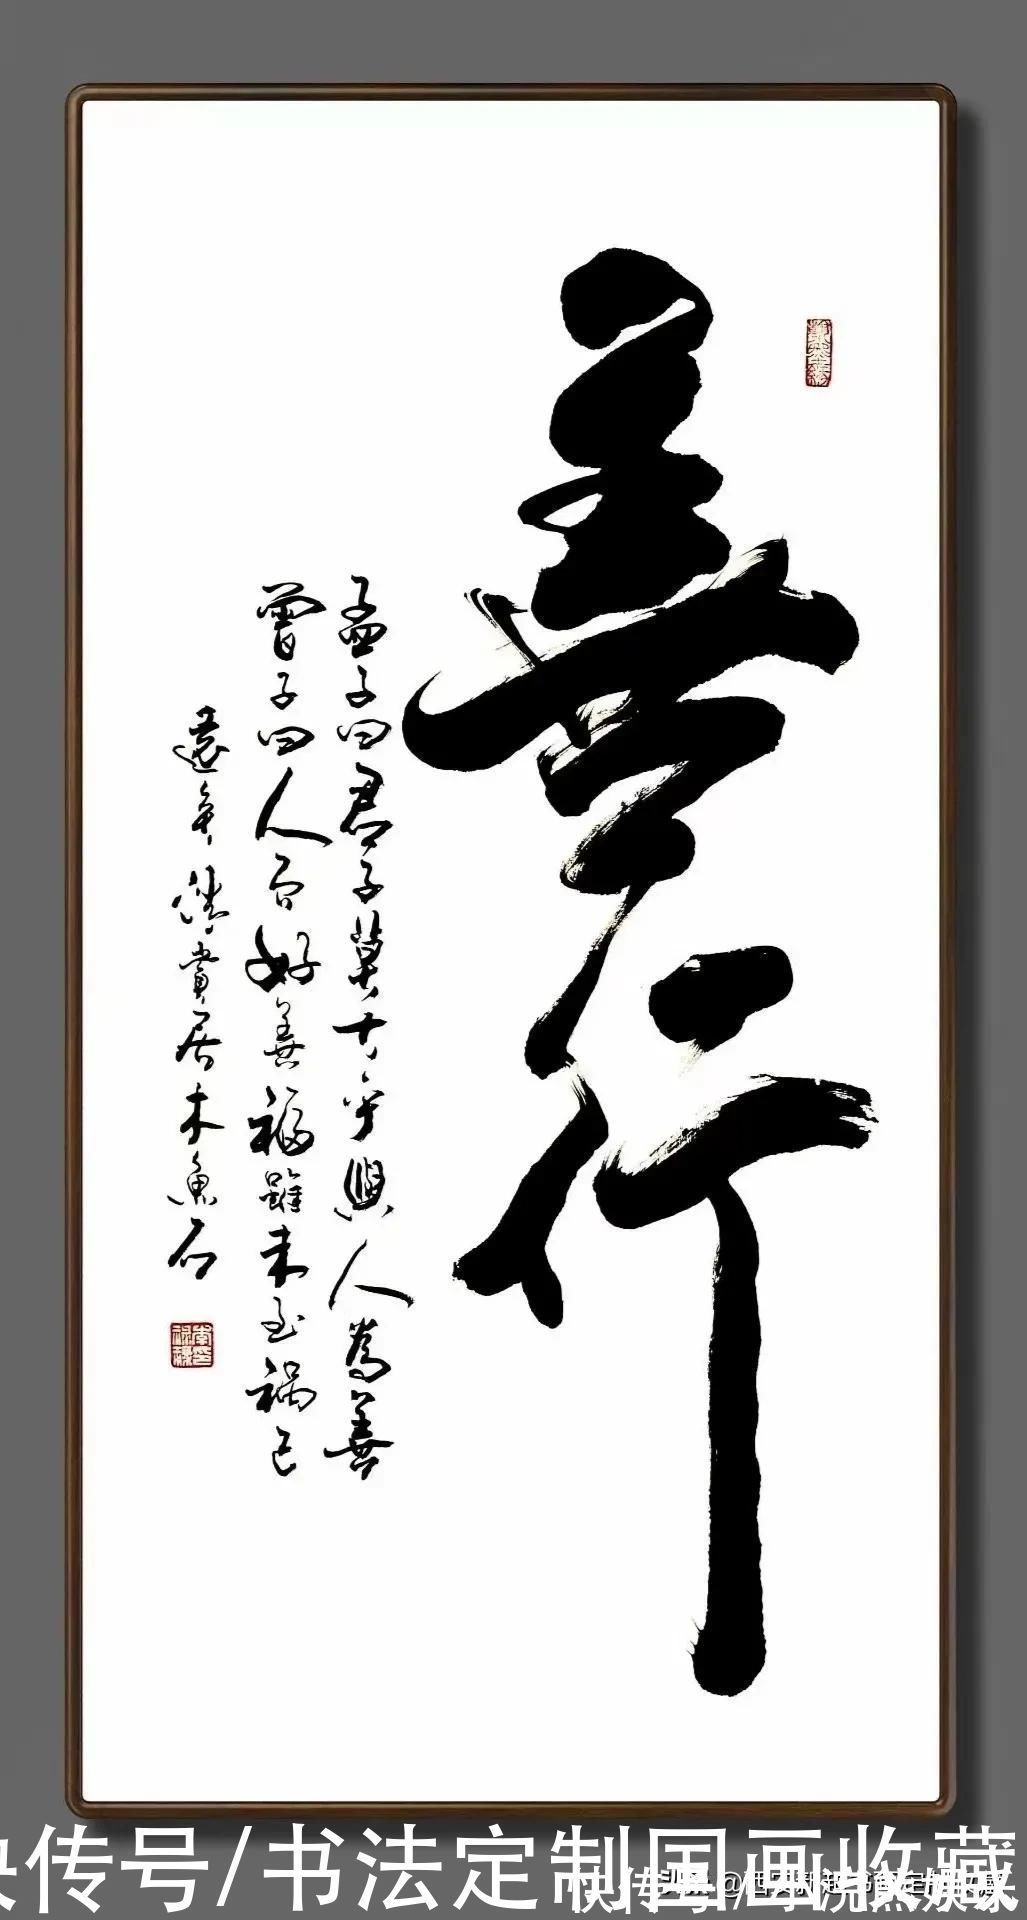 善行
孟子曰君子莫大乎與人為善
曾子曰人而好善福雖未至禍已
遠矣清賞居木魚石
快传号/书法定制国画收藏